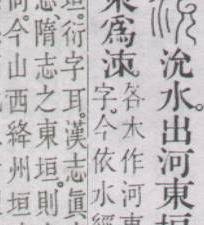 沇水出河東垣
東爲涷。
各本作河東
字。今依水經
垣。衍字耳。漢志眞
志隋志之東垣則
何。今山西絳州垣